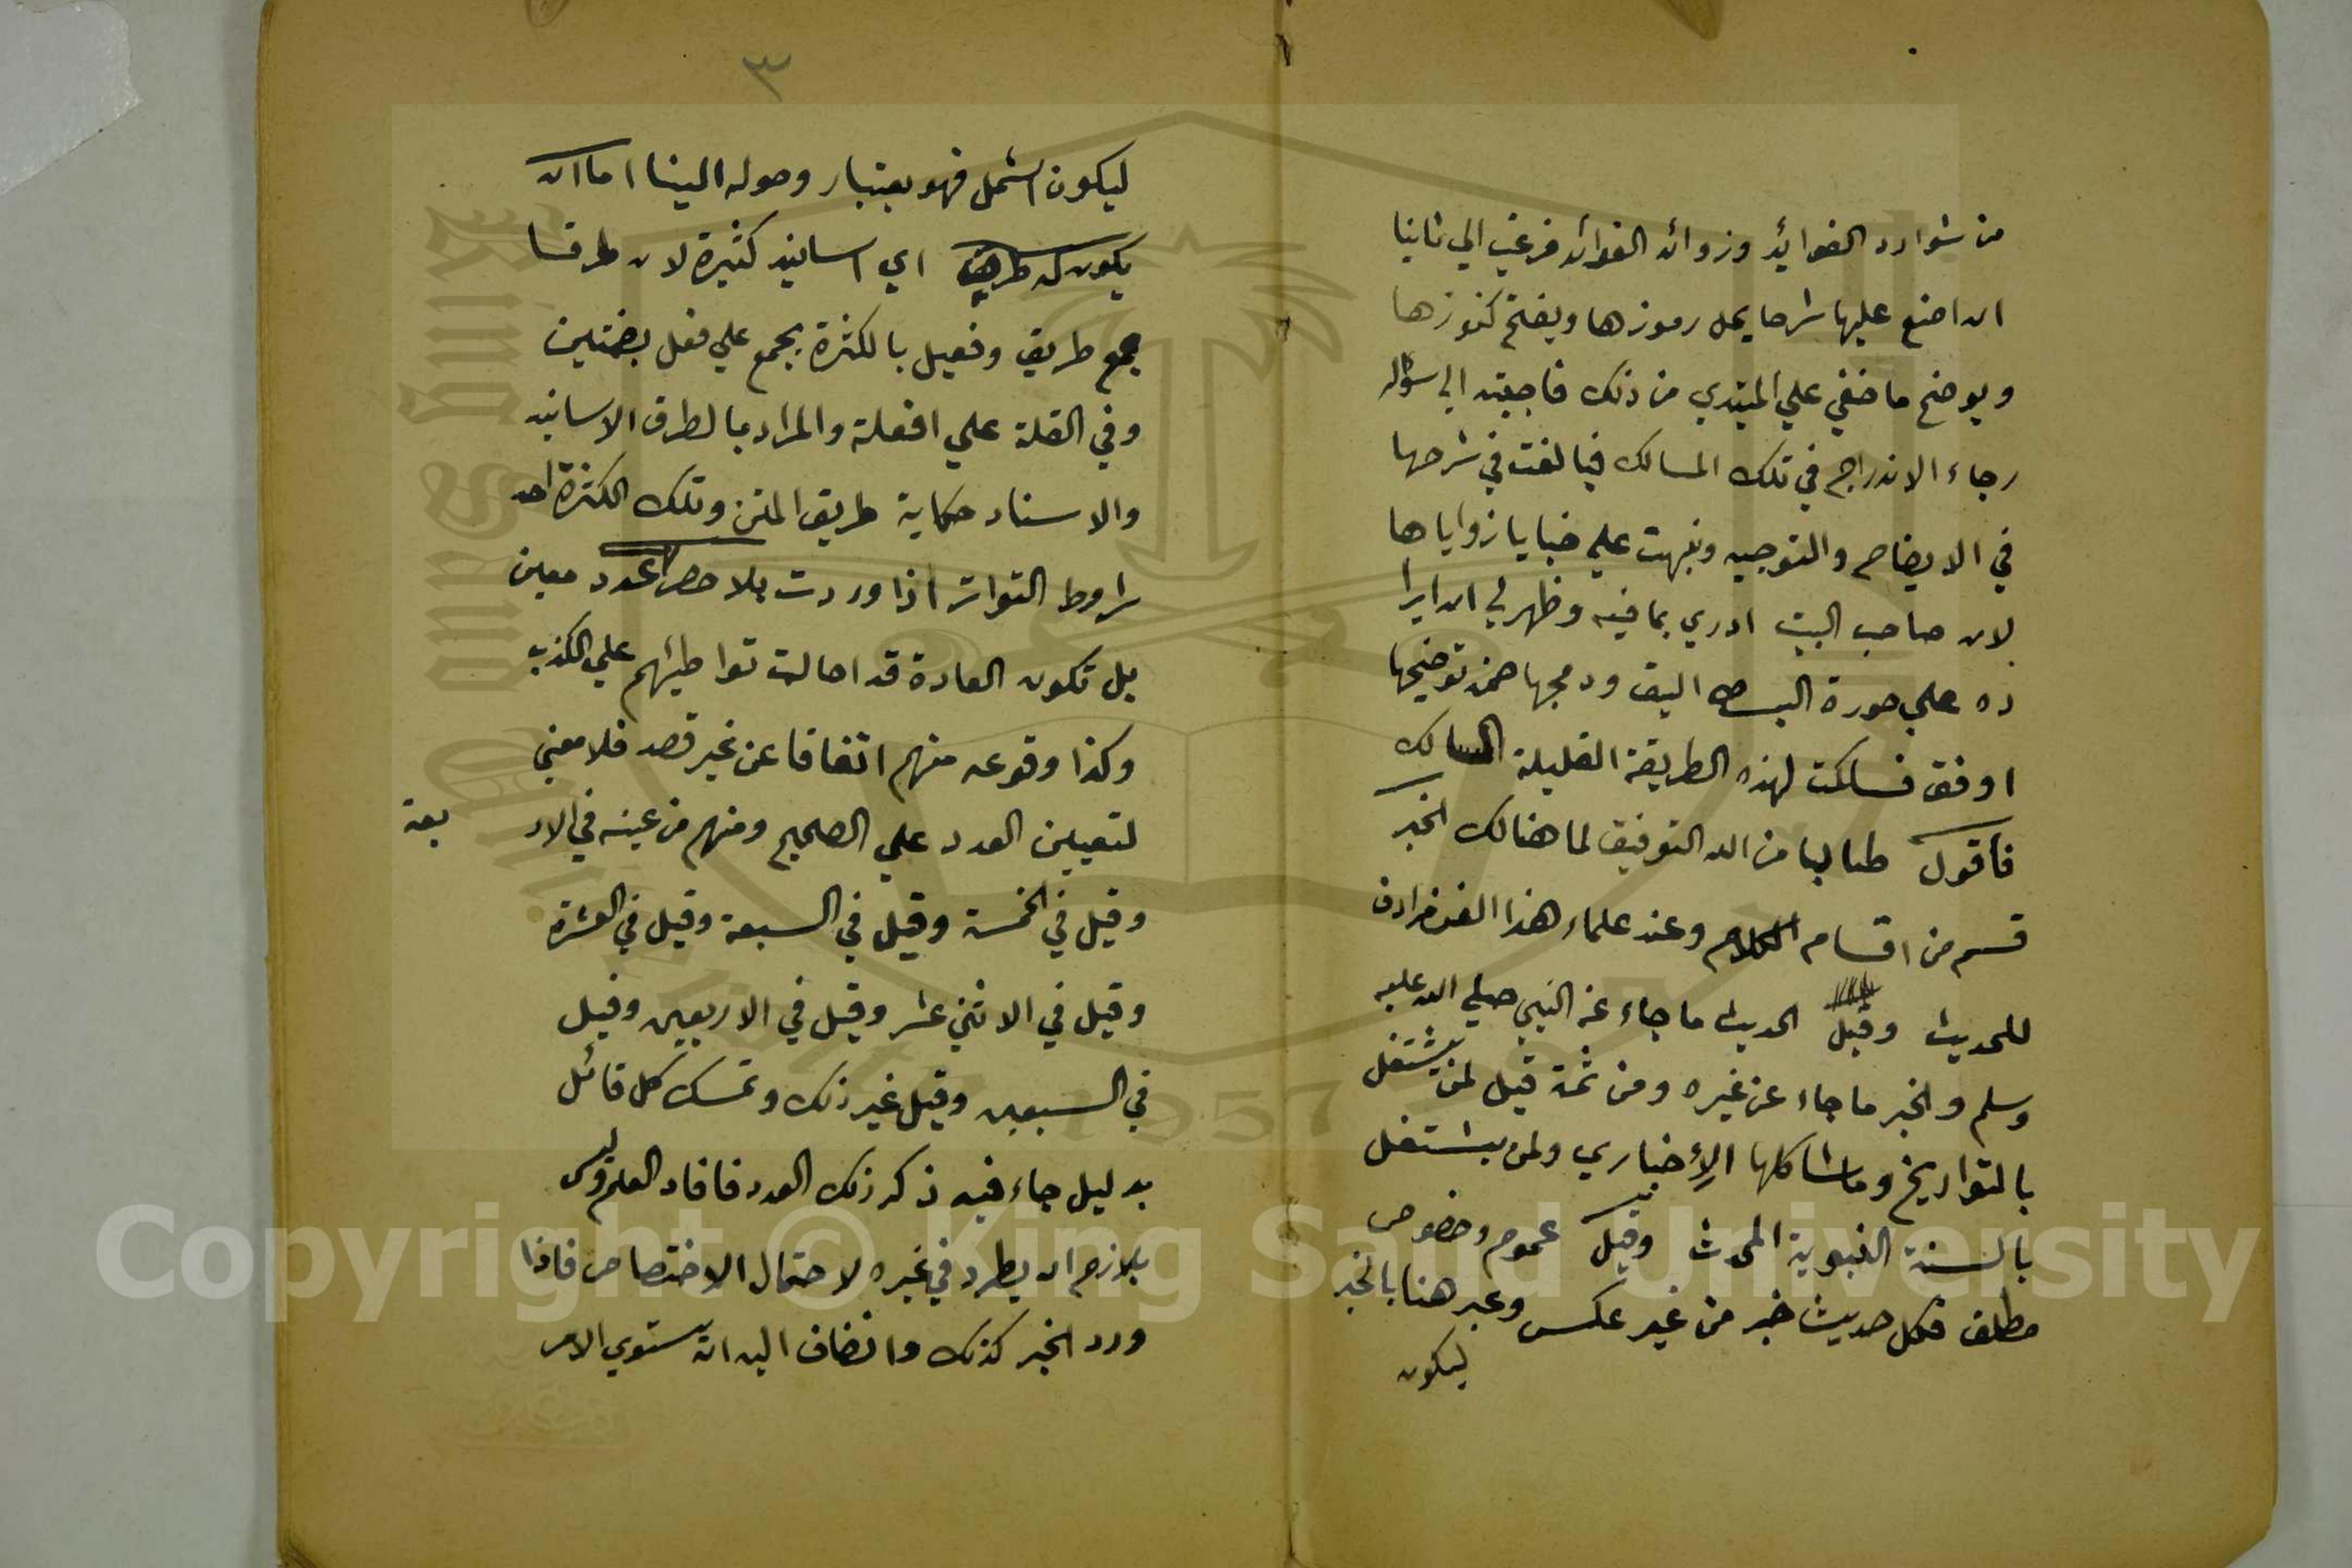 من شوارد الفوائد وزوائد الفوائد فرغب الي ثانيا
ان اضع عليها شرحا يحل رموزها ويفتح كنوزها
ويوضح ما خفي علي المبتدي من ذلك فاجبته الي سؤاله
رجاء الاندراج في تلك المسالك فبالغت في شرحها
في الايضاح والتوجيه ونبهت علي خبايا زواياها
لان صاحب البيت ادري بما فيه وظهر لي ان ايرا
ده علي صورة البسط اليق ودمجها ضمن توضيحها
اوفق فسلكت لهذه الطريقة القليلة المسالك
فاقول طالبا من الله التوفيق لما هنالك الخبر
قسم من اقسام الكلام وعند علماء هذا الفن مرادف
للحديث وقيل الحديث ما جاء عن النبي صلي الله عليه
وسلم والخبر ما جاء عن غيره ومن ثمة قيل لمن يشتغل
بالتواريخ وما شاكلها الإخباري ولمن يشتغل
بالسنة النبوية المحدث وقيل عموم وخصوص
مطلق فكل حديث خبر من غير عكس وعبر هنا بالخبر
ليكون
٣
ليكون اشمل فهو بعتبار وصوله الينا اما ان
يكون له طرق اي اسانيد كثيرة لان طرقا
جمع طريق وفعيل بالكثرة يجمع علي فعل بضمتين
وفي القلة علي افعلة والمراد بالطرق الاسانيد
والاسناد حكاية طريق المتن وتلك الكثرة احد
شروط التواتر اذا وردت بلا حصر عدد معين
بل تكون العادة قد احالت تواطئهم علي الكذب
وكذا وقوعه منهم اتفاقا عن غير قصد فلا معني
لتعيين العدد علي الصحيح ومنهم من عينه في الار بعة
وقيل في الخمسة وقيل في السبعة وقيل في العشرة
وقيل في الاثني عشر وقيل في الاربعين وقيل
في السبعين وقيل غير ذلك وتمسك كل قائل
بدليل جاء فيه ذكر ذلك العدد فافاد العلم وليس
بلازم ان يطرد في غيره لاحتمال الاختصاص فاذا
ورد الخبر كذلك وانضاف اليه ان يستوي الامر
Copyright © King Saud University
1957